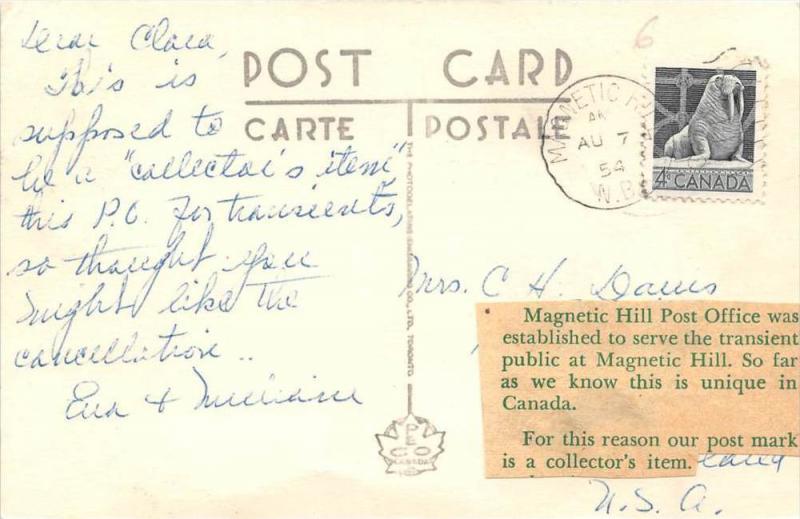 Dear Clara,
This is
supposed to
be a "collector's item"
this P.O. for transients,
so thought you
might like the
cancellation..
Eva +
POST CARD
CARTE POSTALE
THE PHOTOGELATINE ENGRAVING CO., LTD. TORONTO
PECO
CANADA
6
MAGNETIC HILL
AM
AU 7
54
N.B.
4¢ CANADA
Mrs. C H. Davis
Magnetic Hill Post Office was
established to serve the transient
public at Magnetic Hill. So far
as we know this is unique in
Canada.
For this reason our post mark
is a collector's item.
U.S.A.